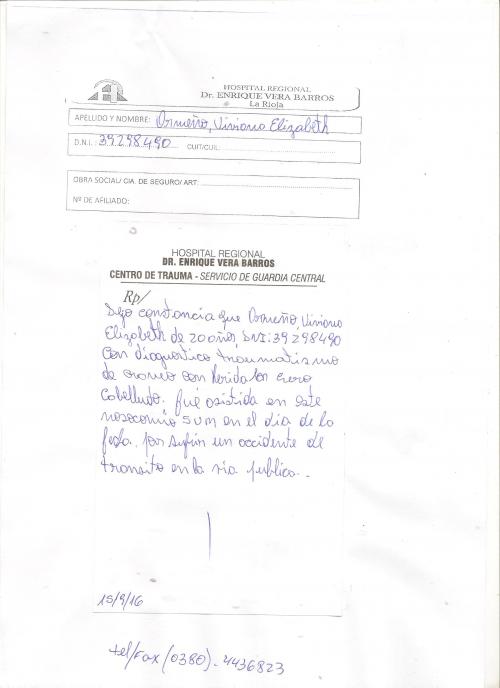 HOSPITAL REGIONAL
Dr. ENRIQUE VERA BARROS
La Rioja
APELLIDO Y NOMBRE: Ormeño, Viviana Elizabeth
D.N.I.: 39.298.490 CUIT/CUIL:
OBRA SOCIAL/ CIA. DE SEGURO/ ART:
Nº DE AFILIADO:
HOSPITAL REGIONAL
DR. ENRIQUE VERA BARROS
CENTRO DE TRAUMA - SERVICIO DE GUARDIA CENTRAL
Rp/
Dejo constancia que Ormeño, Viviana
Elizabeth de 20 años, DNI: 39298490
con diagnostico traumatismo
de craneo con herida en cuero
Cabelludo. fué asistida en este
nosocomio en el dia de la
fecha. por sufrir un accidente de
transito en la via publica.
15/9/16
tel/Fax (0380)-4436823